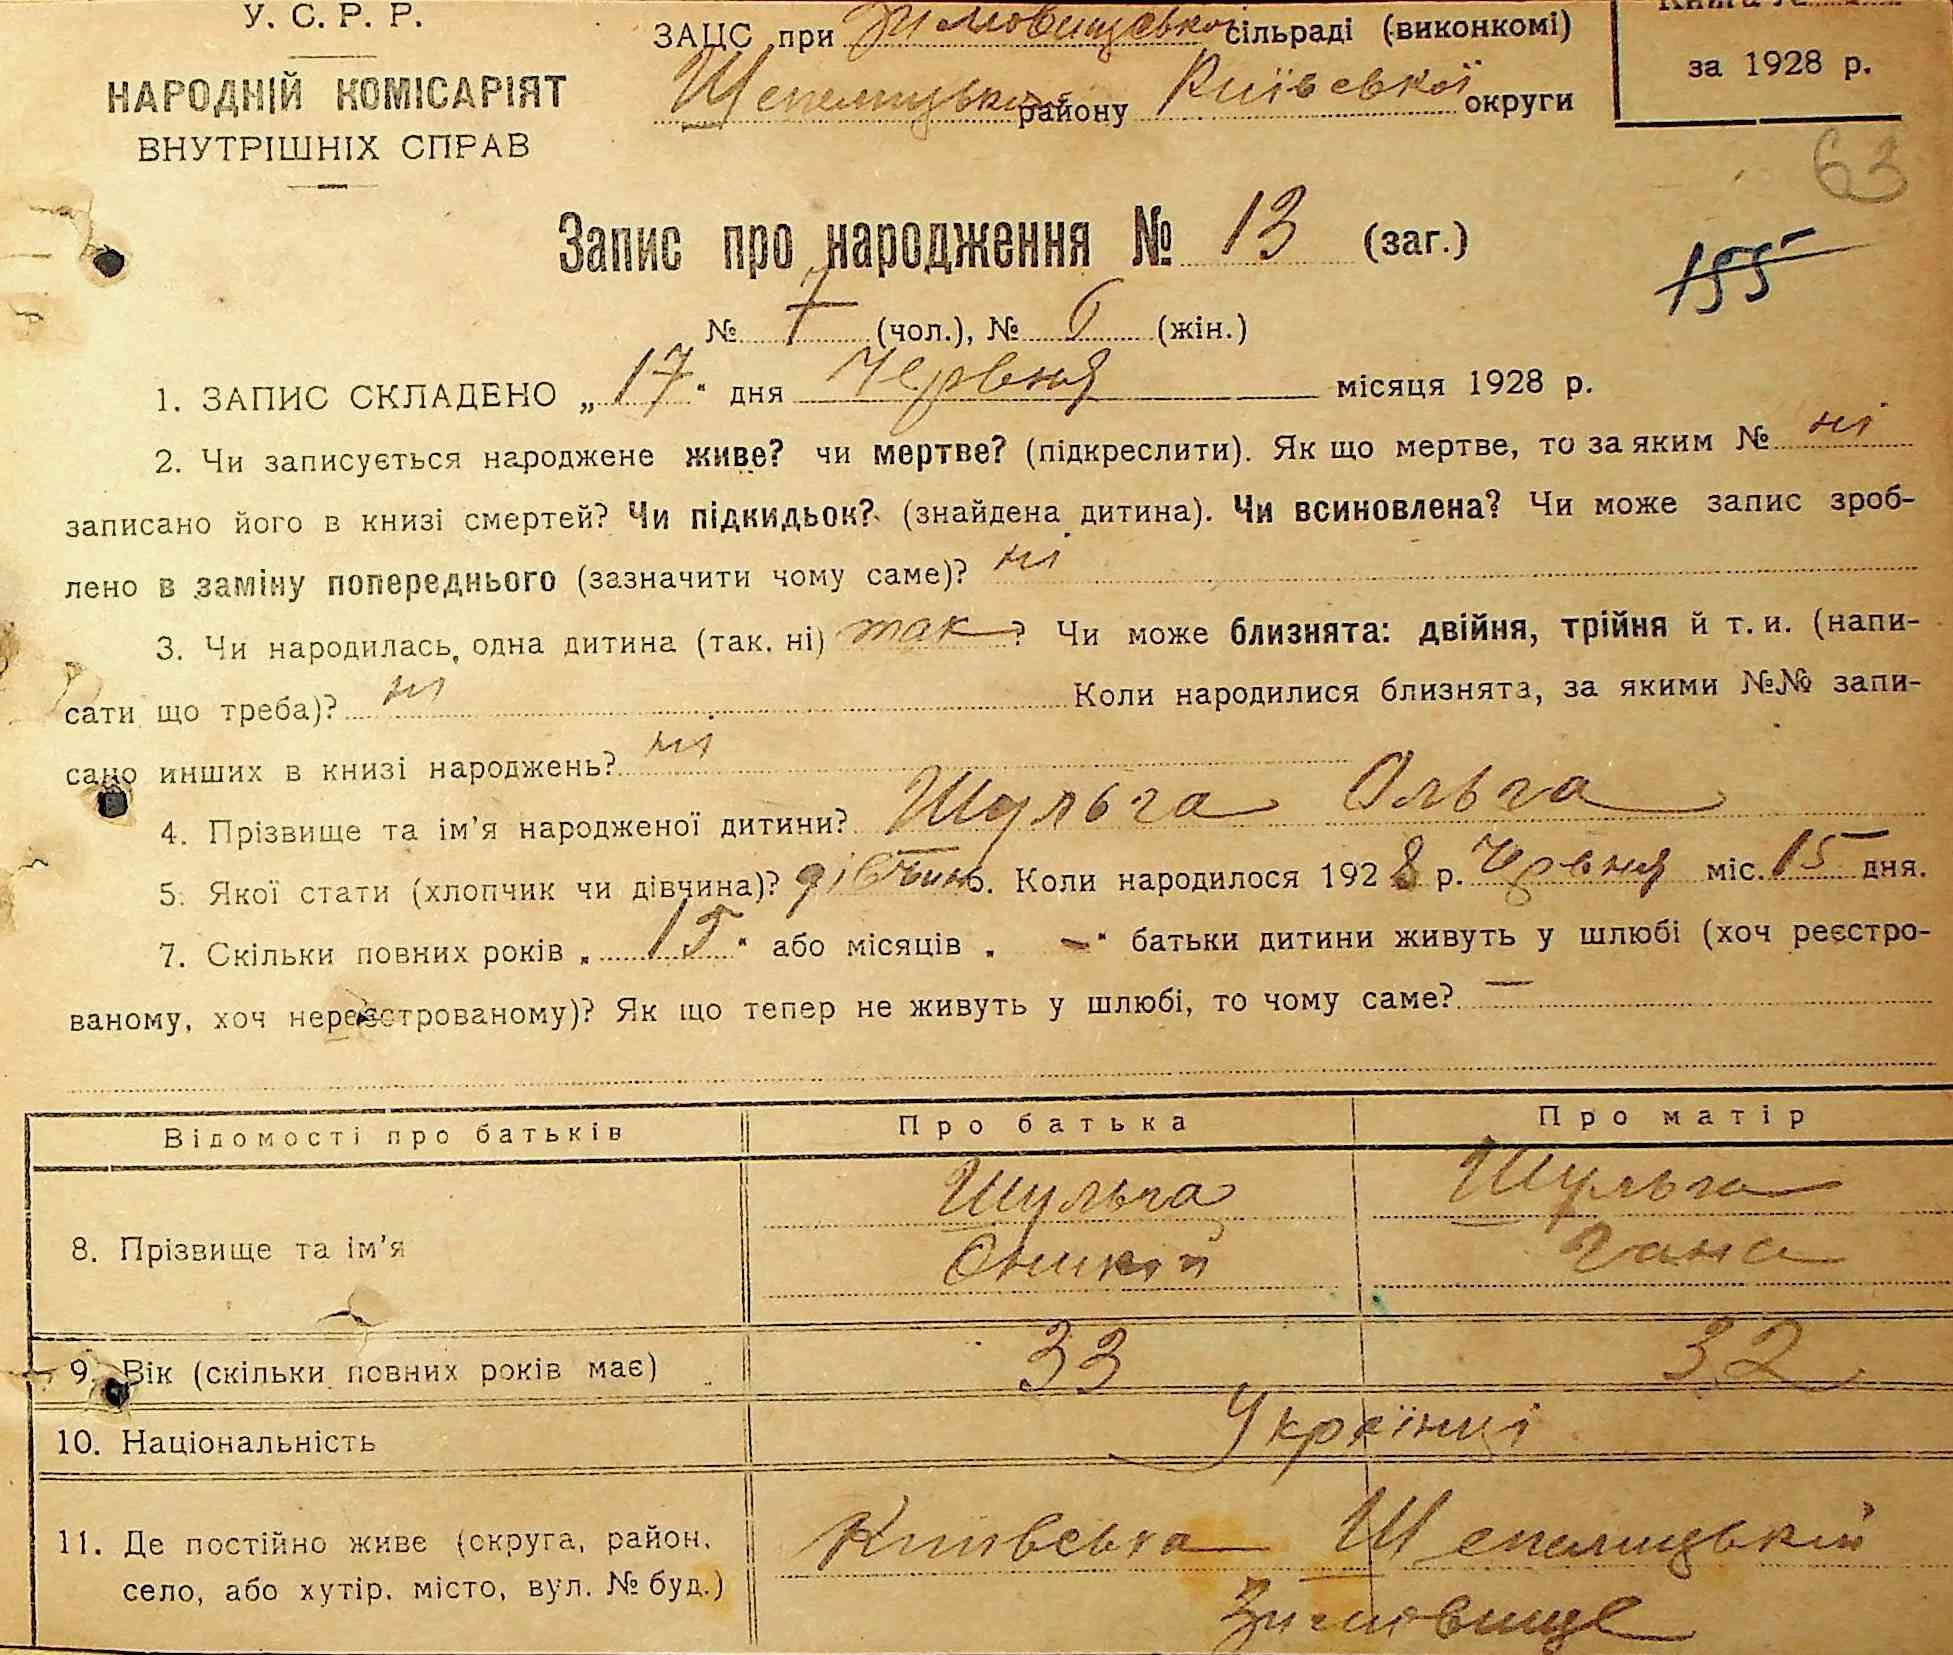 У. С. Р. Р.
НАРОДНІЙ КОМІСАРІЯТ
ВНУТРІШНІХ СПРАВ
ЗАЦС при Зимовищської сільраді (виконкомі)
Шепелицького району Київської округи
за 1928 р.
63
Запис про народження № 13 (заг.)
155
№ 7 (чол.), № 6 (жін.)
1. ЗАПИС СКЛАДЕНО „17" дня Червня місяця 1928 р.
2. Чи записується народжене живе? чи мертве? (підкреслити). Як що мертве, то за яким № ні
записано його в книзі смертей? Чи підкидьок? (знайдена дитина). Чи всиновлена? Чи може запис зроб-
лено в заміну попереднього (зазначити чому саме)? ні
3. Чи народилась одна дитина (так, ні) так? Чи може близнята: двійня, трійня й т. и. (напи-
сати що треба)? ні Коли народилися близнята, за якими №№ запи-
сано инших в книзі народжень? ні
4. Прізвище та ім'я народженої дитини? Шульга Ольга
5. Якої стати (хлопчик чи дівчина)? дівчин. 6. Коли народилося 1928 р. Червня міс. 15 дня.
7. Скільки повних років „15" або місяців „ –" батьки дитини живуть у шлюбі (хоч реєстро-
ваному, хоч нереєстрованому)? Як що тепер не живуть у шлюбі, то чому саме? —
Відомості про батьків Про батька Про матір
8. Прізвище та ім'я Шульга Оникій Шульга Гана
9. Вік (скільки повних років має) 33 32
10. Національність Українці
11. Де постійно живе (округа, район, Київська Шепелицький
село, або хутір, місто, вул. № буд.) Зимовище